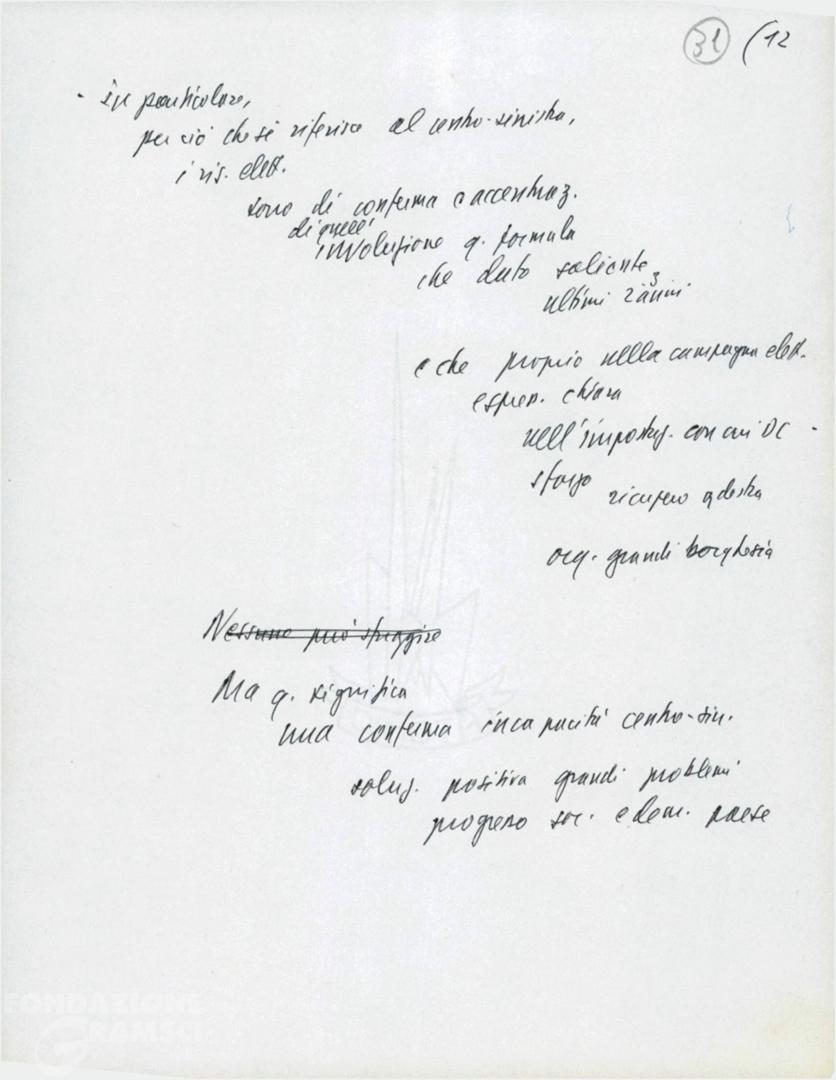 31 (12
- in particolare,
per ciò che si riferisce al centro-sinistra,
i ris. elett.
sono di conferma e accentuaz.
di quell'
involuzione q. formula
che dato saliente
ultimi 2 anni
3
e che proprio nella campagna elett.
espress. chiara
nell'impostaz. con cui DC -
sforzo
ricupero a destra
org. grandi borghesia
Nessuno può sfuggire
Ma q. significa
una conferma incapacità centro-sin.
soluz. positiva grandi problemi
progresso soc. e dem. paese
FONDAZIONE
GRAMSCI